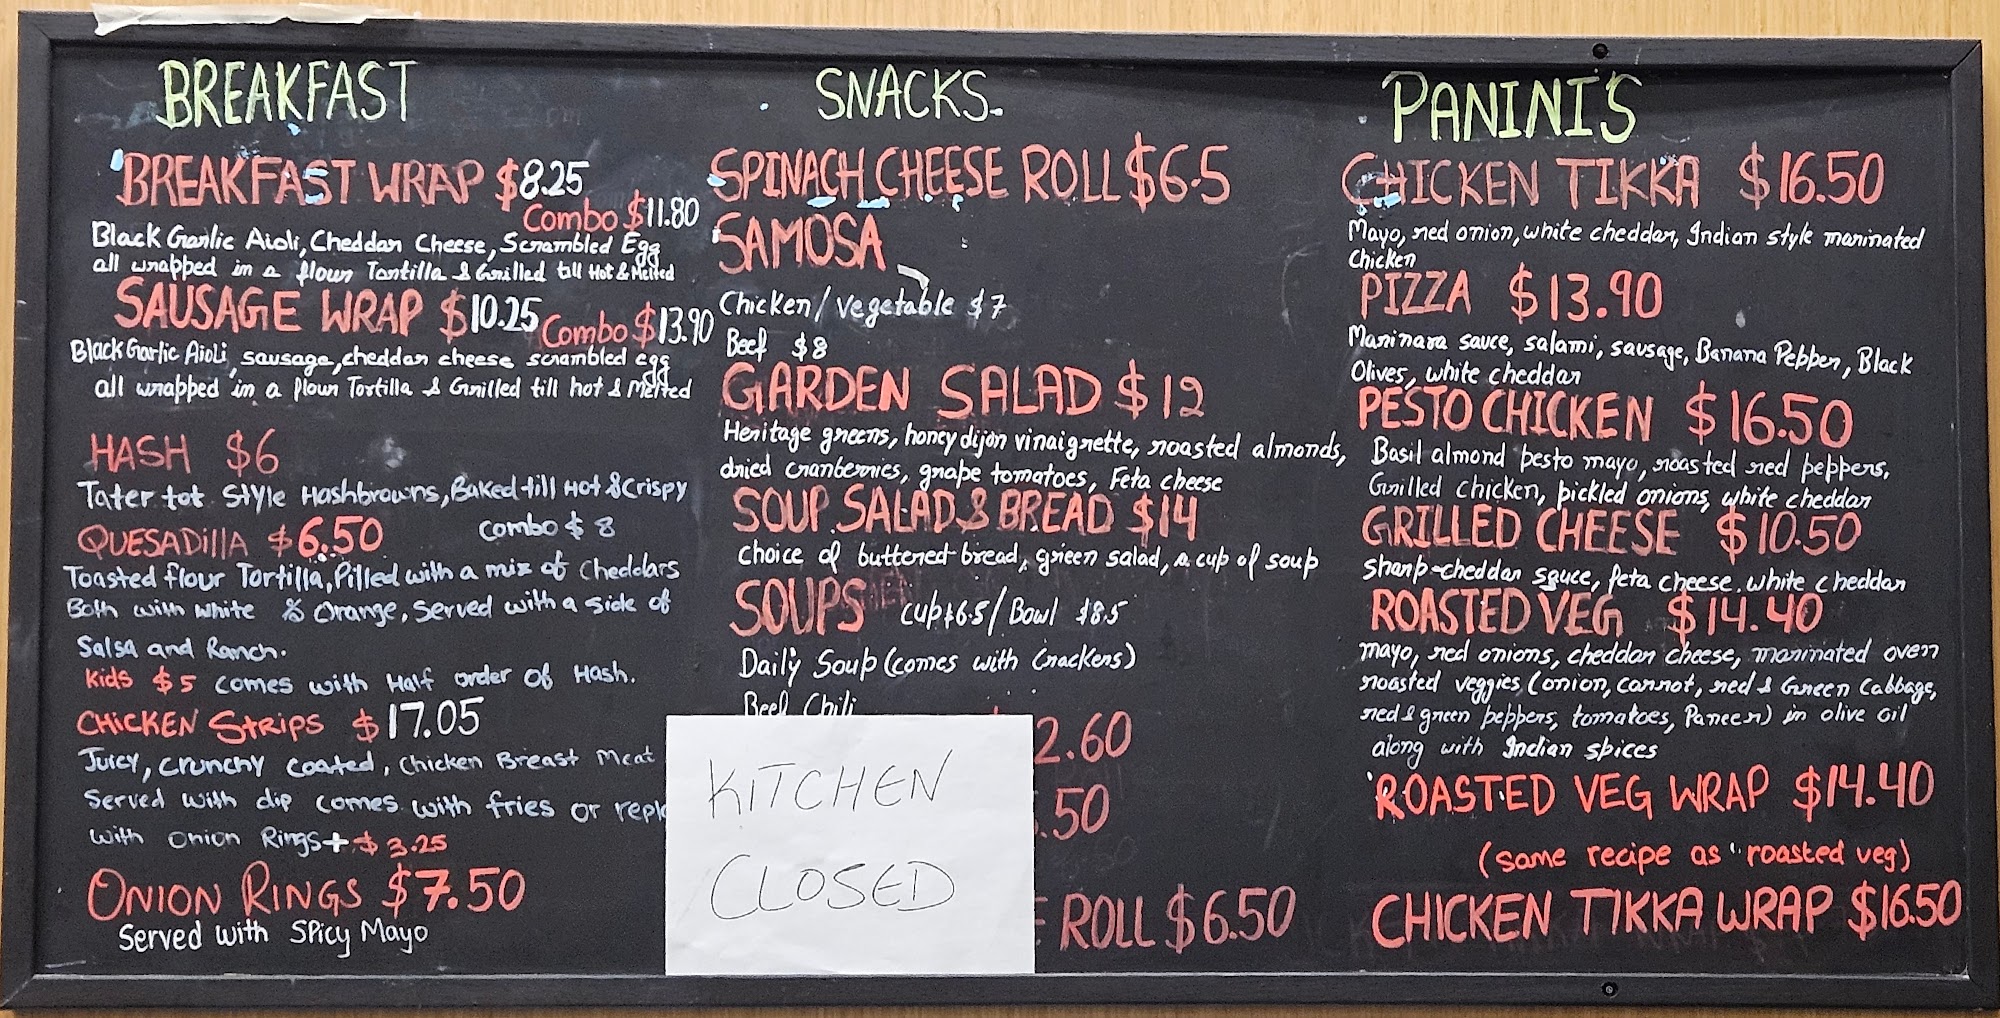 BREAKFAST
BREAKFAST WRAP $8.25
Combo $11.80
Black Garlic Aioli, Cheddar Cheese, Scrambled Egg
all wrapped in a flour Tortilla & Grilled till Hot & Melted
SAUSAGE WRAP $10.25 Combo $13.90
Black Garlic Aioli, sausage, cheddar cheese scrambled egg
all wrapped in a flour Tortilla & Grilled till hot & Melted
HASH $6
Tater tot Style Hashbrowns, Baked till Hot & Crispy
QUESADillA $6.50 Combo $8
Toasted flour Tortilla, Filled with a mix of Cheddars
Both with white & Orange, Served with a side of
Salsa and Ranch.
Kids $5 comes with Half order of Hash.
CHiCKEN STRiPS $17.05
Juicy, crunchy coated, Chicken Breast Meat
Served with dip comes with fries or repl
with Onion Rings + $3.25
ONION RINGS $7.50
Served with Spicy Mayo
SNACKS.
SPINACH CHEESE ROLL $6.5
SAMOSA
Chicken/Vegetable $7
Beef $8
GARDEN SALAD $12
Heritage greens, honey dijon vinaignette, roasted almonds,
dried cranberries, grape tomatoes, Feta cheese
SOUP, SALAD & BREAD $14
choice of buttered bread, green salad, a cup of soup
SOUPS cup $6.5/Bowl $8.5
Daily Soup (comes with Crackers)
Beef Chili
2.60
.50
KITCHEN
CLOSED
ROLL $6.50
PANINI'S
CHICKEN TIKKA $16.50
Mayo, red onion, white cheddar, Indian style marinated
Chicken
PIZZA $13.90
Marinara sauce, salami, sausage, Banana Pepper, Black
Olives, white cheddar
PESTO CHICKEN $16.50
Basil almond pesto mayo, roasted red peppers,
Grilled chicken, pickled onions, white cheddar
GRILLED CHEESE $10.50
sharp-cheddar sauce, feta cheese, white cheddar
ROASTED VEG $14.40
mayo, red onions, cheddar cheese, marinated oven
roasted veggies (onion, carrot, red & Green Cabbage,
red & green peppers, tomatoes, Paneer) in olive oil
along with Indian spices
ROASTED VEG WRAP $14.40
(same recipe as "roasted veg)
CHICKEN TIKKA WRAP $16.50